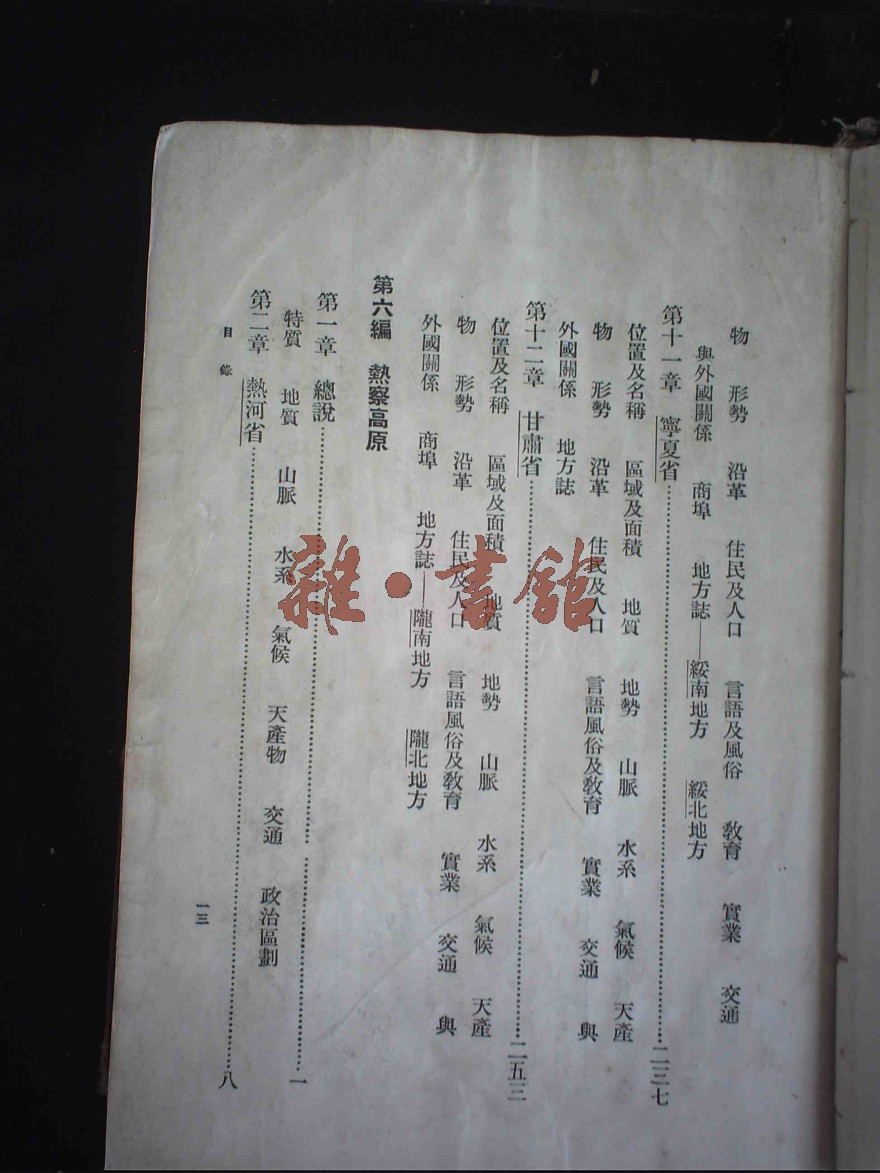 物　形勢　沿革　住民及人口　言語及風俗　教育　實業　交通
與外國關係　商埠　地方誌——綏南地方　綏北地方
第十一章　寧夏省……二三七
位置及名稱　區域及面積　地質　地勢　山脈　水系　氣候　天產
物　形勢　沿革　住民及人口　言語風俗及教育　實業　交通　與
外國關係　地方誌
第十二章　甘肅省……二五三
位置及名稱　區域及面積　地質　地勢　山脈　水系　氣候　天產
物　形勢　沿革　住民及人口　言語風俗及教育　實業　交通　與
外國關係　商埠　地方誌——隴南地方　隴北地方
第六編　熱察高原
第一章　總說……一
特質　地質　山脈　水系　氣候　天產物　交通　政治區劃
第二章　熱河省……八
目錄
一三
雜·書館